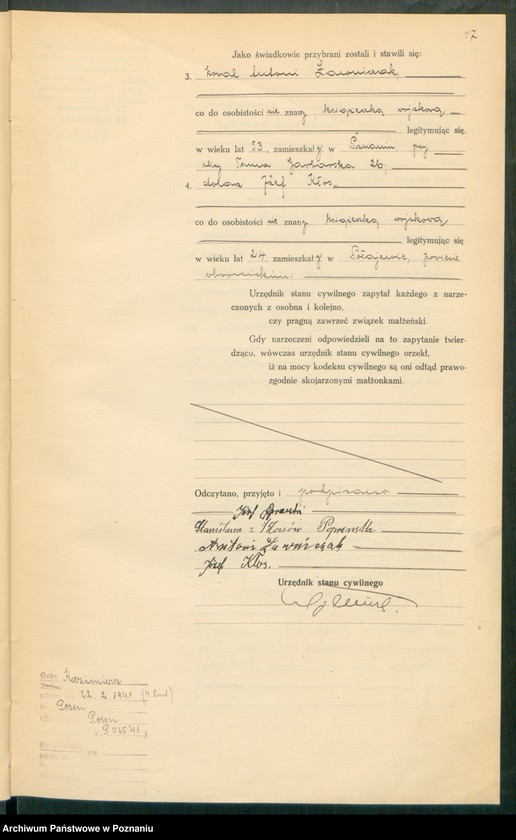 17
Jako świadkowie przybrani zostali i stawili się:
3. kowal Antoni Ławniczak,
co do osobistości nie znany, książeczką wojskową
legitymując się.
w wieku lat 53, zamieszkały w Poznaniu, przy
ulicy Garbarska 26,
4. Józef Kłos,
co do osobistości nie znany książeczką wojskową
legitymując się
w wieku lat 24. zamieszkały w powiecie
obornickim.
Urzędnik stanu cywilnego zapytał każdego z narze-
czonych z osobna i kolejno,
czy pragną zawrzeć związek małżeński.
Gdy narzeczeni odpowiedzieli na to zapytanie twier-
dząco, wówczas urzędnik stanu cywilnego orzekł,
iż na mocy kodeksu cywilnego są oni odtąd prawo-
zgodnie skojarzonymi małżonkami.
Odczytano, przyjęto i podpisano
Józef
Stanisława z Kłosów
Antoni Ławniczak
Józef Kłos.
Urzędnik stanu cywilnego
Kazimierz
22. 2. 1941 (4. Kind)
Posen
Posen
Archiwum Państwowe w Poznaniu